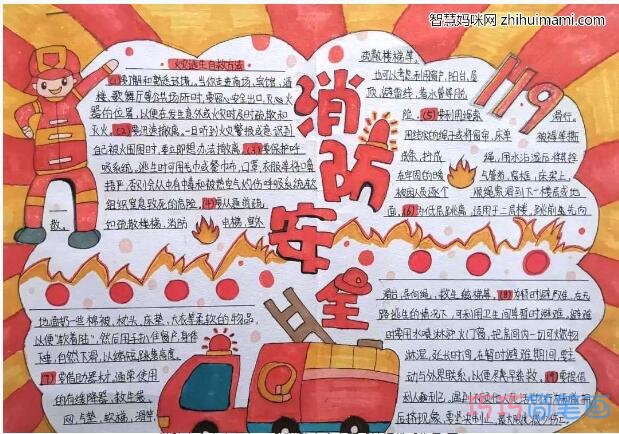 智慧妈咪网 zhihuimami.com
火灾逃生自救方法
消防安全
119
(1)要了解和熟悉环境。当你走进商场、宾馆、酒
楼、歌舞厅等公共场所时,要留心安全出口、灭火
器的位置,以便在发生意外或火灾时及时疏散和
灭火。(2)要迅速撤离。一旦听到火灾警报或意识到
自己被火围困时,要立即想办法撤离。(3)要保护呼
吸系统。逃生时可用毛巾或餐巾布、口罩、衣服等将口鼻
捂严,否则会有中毒和被热空气灼伤呼吸系统软
组织窒息致死的危险。(4)要从通道疏
散。
如疏散楼梯、消防
电梯、室外
疏散楼梯等。
也可考虑利用窗户、阳台、屋
顶、避雷线、落水管等脱
险。(5)要利用绳索
滑行。
用结实的绳子或将窗帘、床单
被褥等撕
成条,拧成
绳,用水沾湿后将其拴
在牢固的暖
气管道、窗框、床架上,
被困人员逐个
顺绳索滑到下一楼层或地
面。(6)为低层跳离,适用于二层楼。跳前先向
地面扔一些棉被、枕头、床垫、大衣等柔软的物品,
以便“软着陆”,然后用手扒住窗户,身体
下垂,自然下滑,以缩短跳落高度。
(7)要借助器材。通常使用
的有缓降器、救生袋、
网、气垫、软梯、滑竿、
滑台、导向绳、救生舷梯等。(8)为暂时避难。在无
路逃生的情况下,可利用卫生间等暂时避难。避难
时要用水喷淋迎火门窗,把房间内一切可燃物
淋湿,延长时间。在暂时避难期间,要主
动与外界联系,以便尽早获救。(9)要提倡
利人利己。
巧巧简笔画